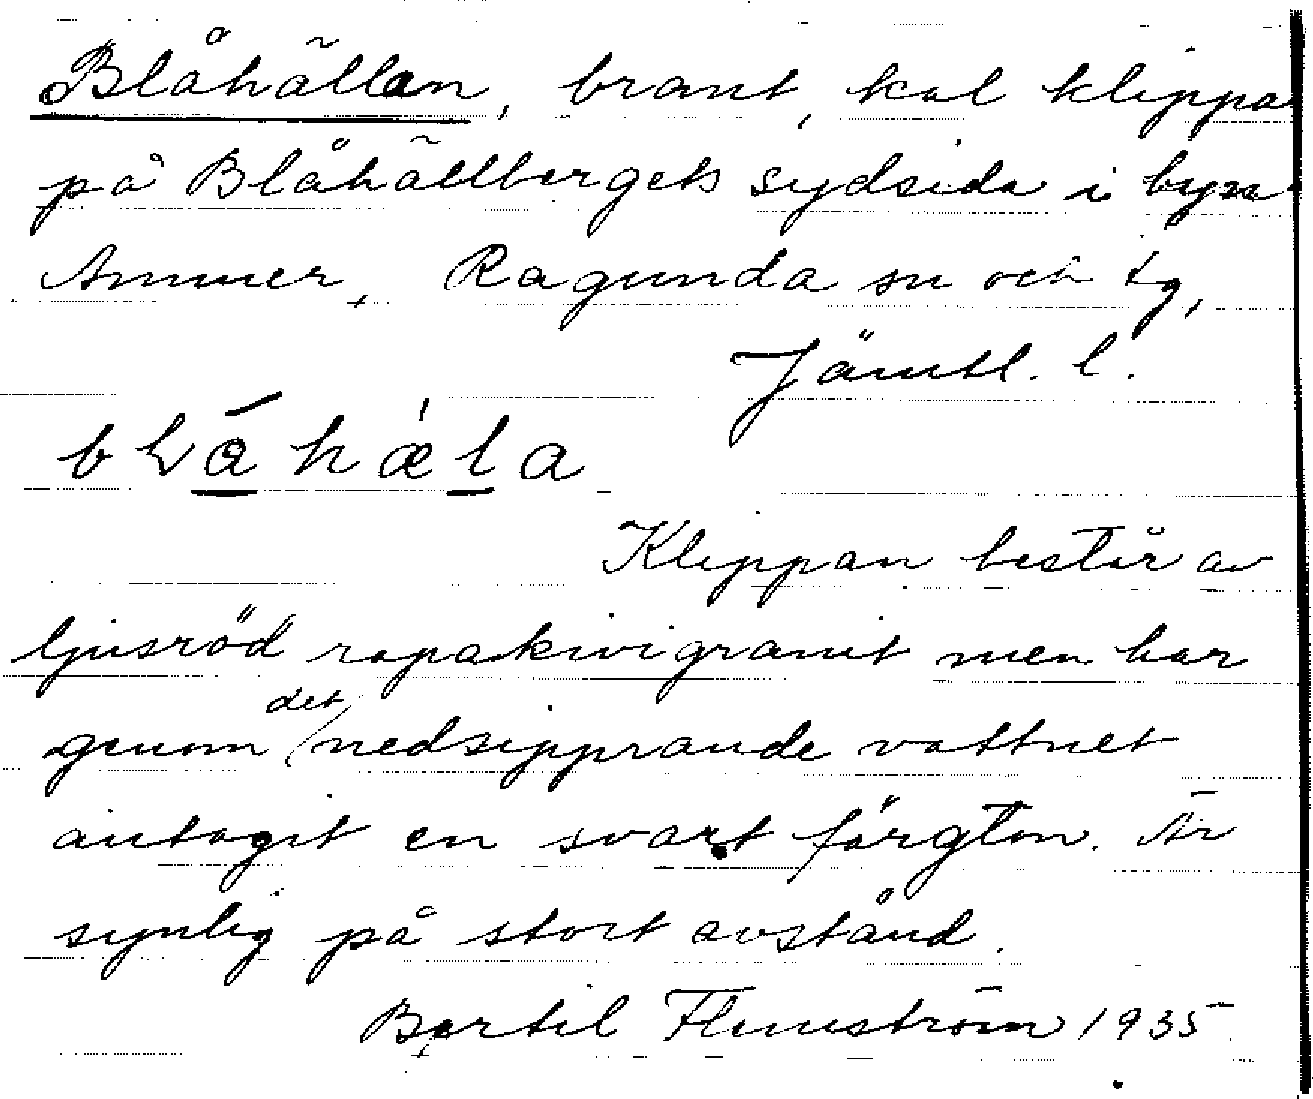 Blåhällan, brant, kal klippa
på Blåhällbergets sydsida i byn
Ammer, Ragunda sn och tg,
Jämtl. l.
Klippan består av
ljusröd rapakivigranit men har
genom det nedsipprande vattnet
antagit en svart färgton. Är
synlig på stort avstånd.
Bertil Flemström 1935